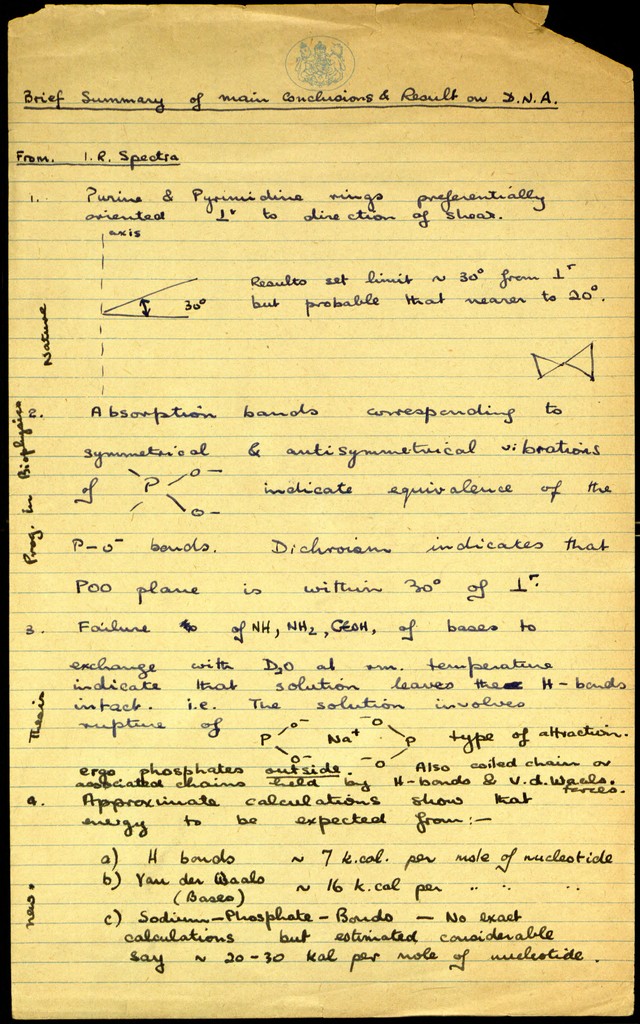 Brief Summary of main conclusions & Result on D.N.A.
From. I.R. Spectra
1. Purine & Pyrimidine rings preferentially
oriented ⊥r to direction of shear.
axis
Results set limit ~ 30° from ⊥r
30° but probable that nearer to 20°.
Nature
2. Absorption bands corresponding to
symmetrical & antisymmetrical vibrations
of P O- O- indicate equivalence of the
P-O- bonds. Dichroism indicates that
POO plane is within 30° of ⊥r.
Prog. in Biophysics
3. Failure of NH, NH2, of bases to
exchange with D2O at rm. temperature
indicate that solution leaves the H-bonds
intact. i.e. The solution involves
rupture of P O- O- Na+ -O -O P type of attraction.
ergo phosphates outside. Also coiled chain or
associated chains held by H-bonds & V.d.Waals.
forces.
Thesis
4. Approximate calculations show that
energy to be expected from:-
a) H bonds ~ 7 k.cal. per mole of nucleotide
b) Van der Waals ~ 16 k.cal per " " "
(Bases)
c) Sodium-Phosphate-Bonds - No exact
calculations but estimated considerable
say ~ 20-30 kal per mole of nucleotide.
new.